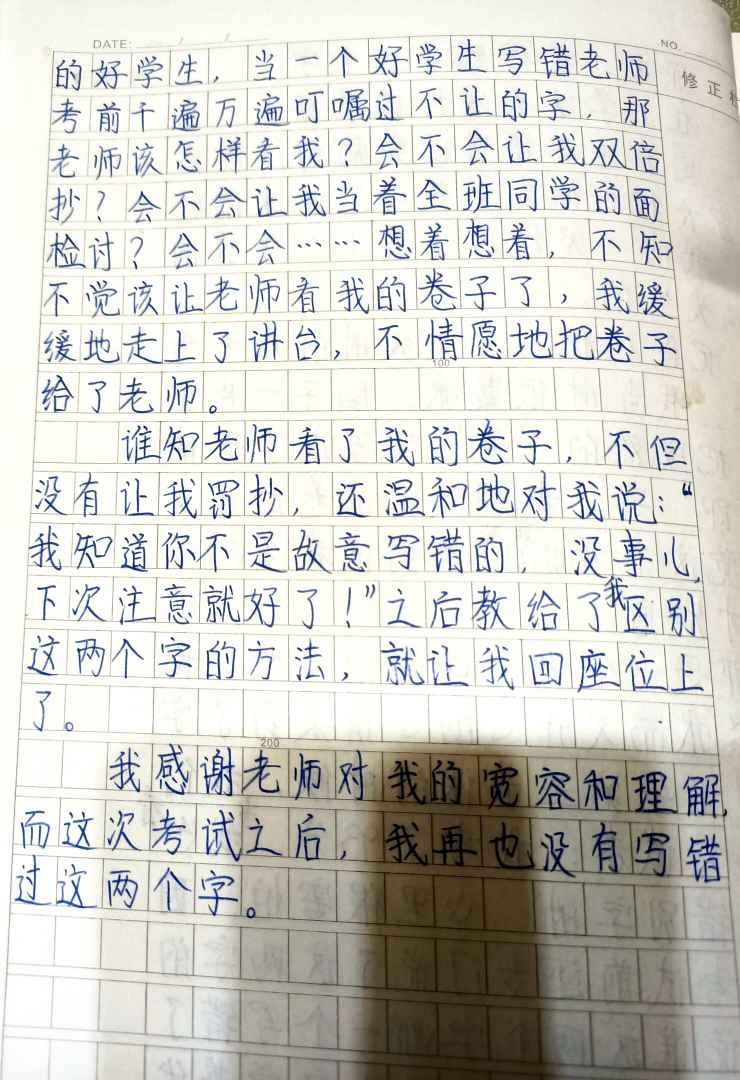 DATE: / /
NO.
修正
的好学生，当一个好学生写错老师
考前千遍万遍叮嘱过不让的字，那
老师该怎样看我？会不会让我双倍
抄？会不会让我当着全班同学的面
检讨？会不会……想着想着，不知
不觉该让老师看我的卷子了，我缓
缓地走上了讲台，不情愿地把卷子
100
给了老师。
谁知老师看了我的卷子，不但
没有让我罚抄，还温和地对我说：“
我知道你不是故意写错的，没事儿，
下次注意就好了！”之后教给了我区别
这两个字的方法，就让我回座位上
了。
200
我感谢老师对我的宽容和理解，
而这次考试之后，我再也没有写错
过这两个字。